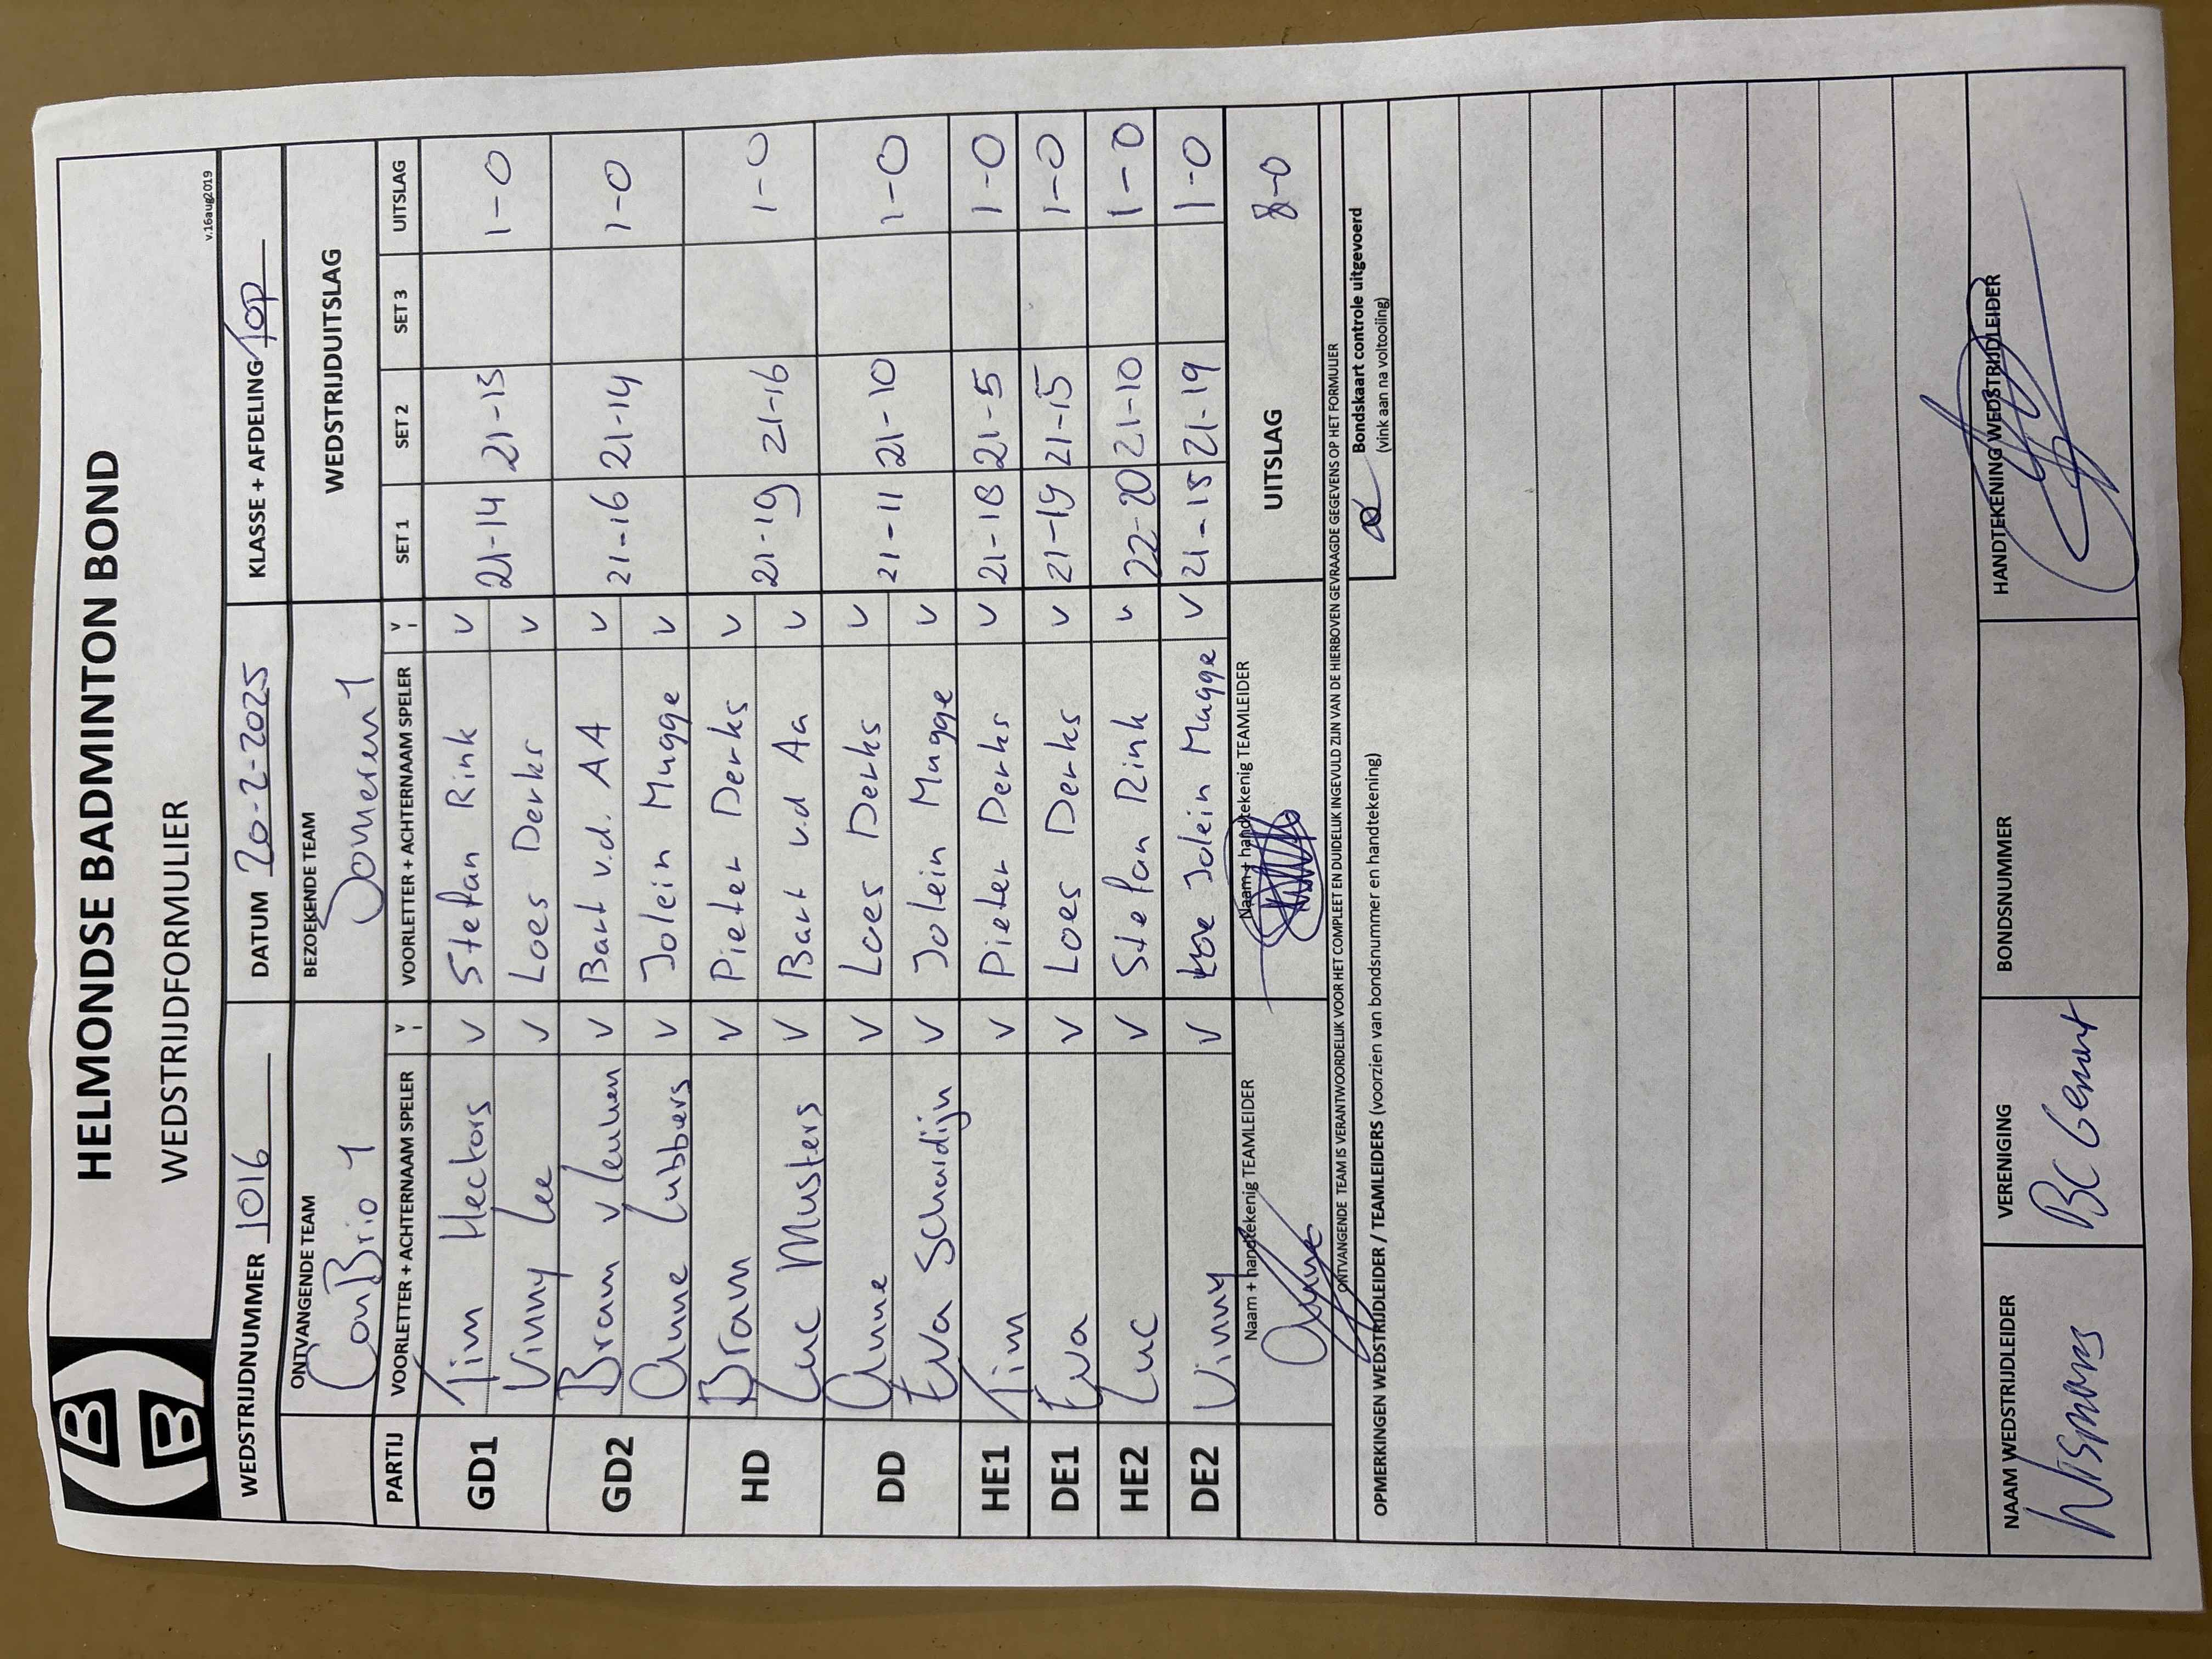 HELMONDSE BADMINTON BOND
WEDSTRIJDFORMULIER
v.16aug2019
WEDSTRIJDNUMMER 1016 DATUM 20-2-2025 KLASSE + AFDELING Top
ONTVANGENDE TEAM BEZOEKENDE TEAM WEDSTRIJDUITSLAG
ConBrio 1 Someren 1
PARTIJ VOORLETTER + ACHTERNAAM SPELER V VOORLETTER + ACHTERNAAM SPELER V SET 1 SET 2 SET 3 UITSLAG
GD1 Tim Hectors v Stefan Rink v 21-14 21-13 1-0
Vinny Lee v Loes Derks v
GD2 Bram v Leuken v Bart v.d. AA v 21-16 21-14 1-0
Anne Lubbers v Jolein Mugge v
HD Bram v Pieter Derks v 21-19 21-16 1-0
Luc Musters v Bart v.d Aa v
DD Anne v Loes Derks v 21-11 21-10 1-0
Eva Schardijn v Jolein Mugge v
HE1 Tim v Pieter Derks v 21-18 21-5 1-0
DE1 Eva v Loes Derks v 21-19 21-15 1-0
HE2 Luc v Stefan Rink v 22-20 21-10 1-0
DE2 Vinny v Jolein Mugge v 21-15 21-19 1-0
Naam + handtekenig TEAMLEIDER Naam + handtekenig TEAMLEIDER UITSLAG 8-0
ONTVANGENDE TEAM IS VERANTWOORDELIJK VOOR HET COMPLEET EN DUIDELIJK INGEVULD ZIJN VAN DE HIERBOVEN GEVRAAGDE GEGEVENS OP HET FORMULIER
Bondskaart controle uitgevoerd
(vink aan na voltooiing)
OPMERKINGEN WEDSTRIJDLEIDER / TEAMLEIDERS (voorzien van bondsnummer en handtekening)
NAAM WEDSTRIJDLEIDER VERENIGING BONDSNUMMER HANDTEKENING WEDSTRIJDLEIDER
Wismans BC Gemert